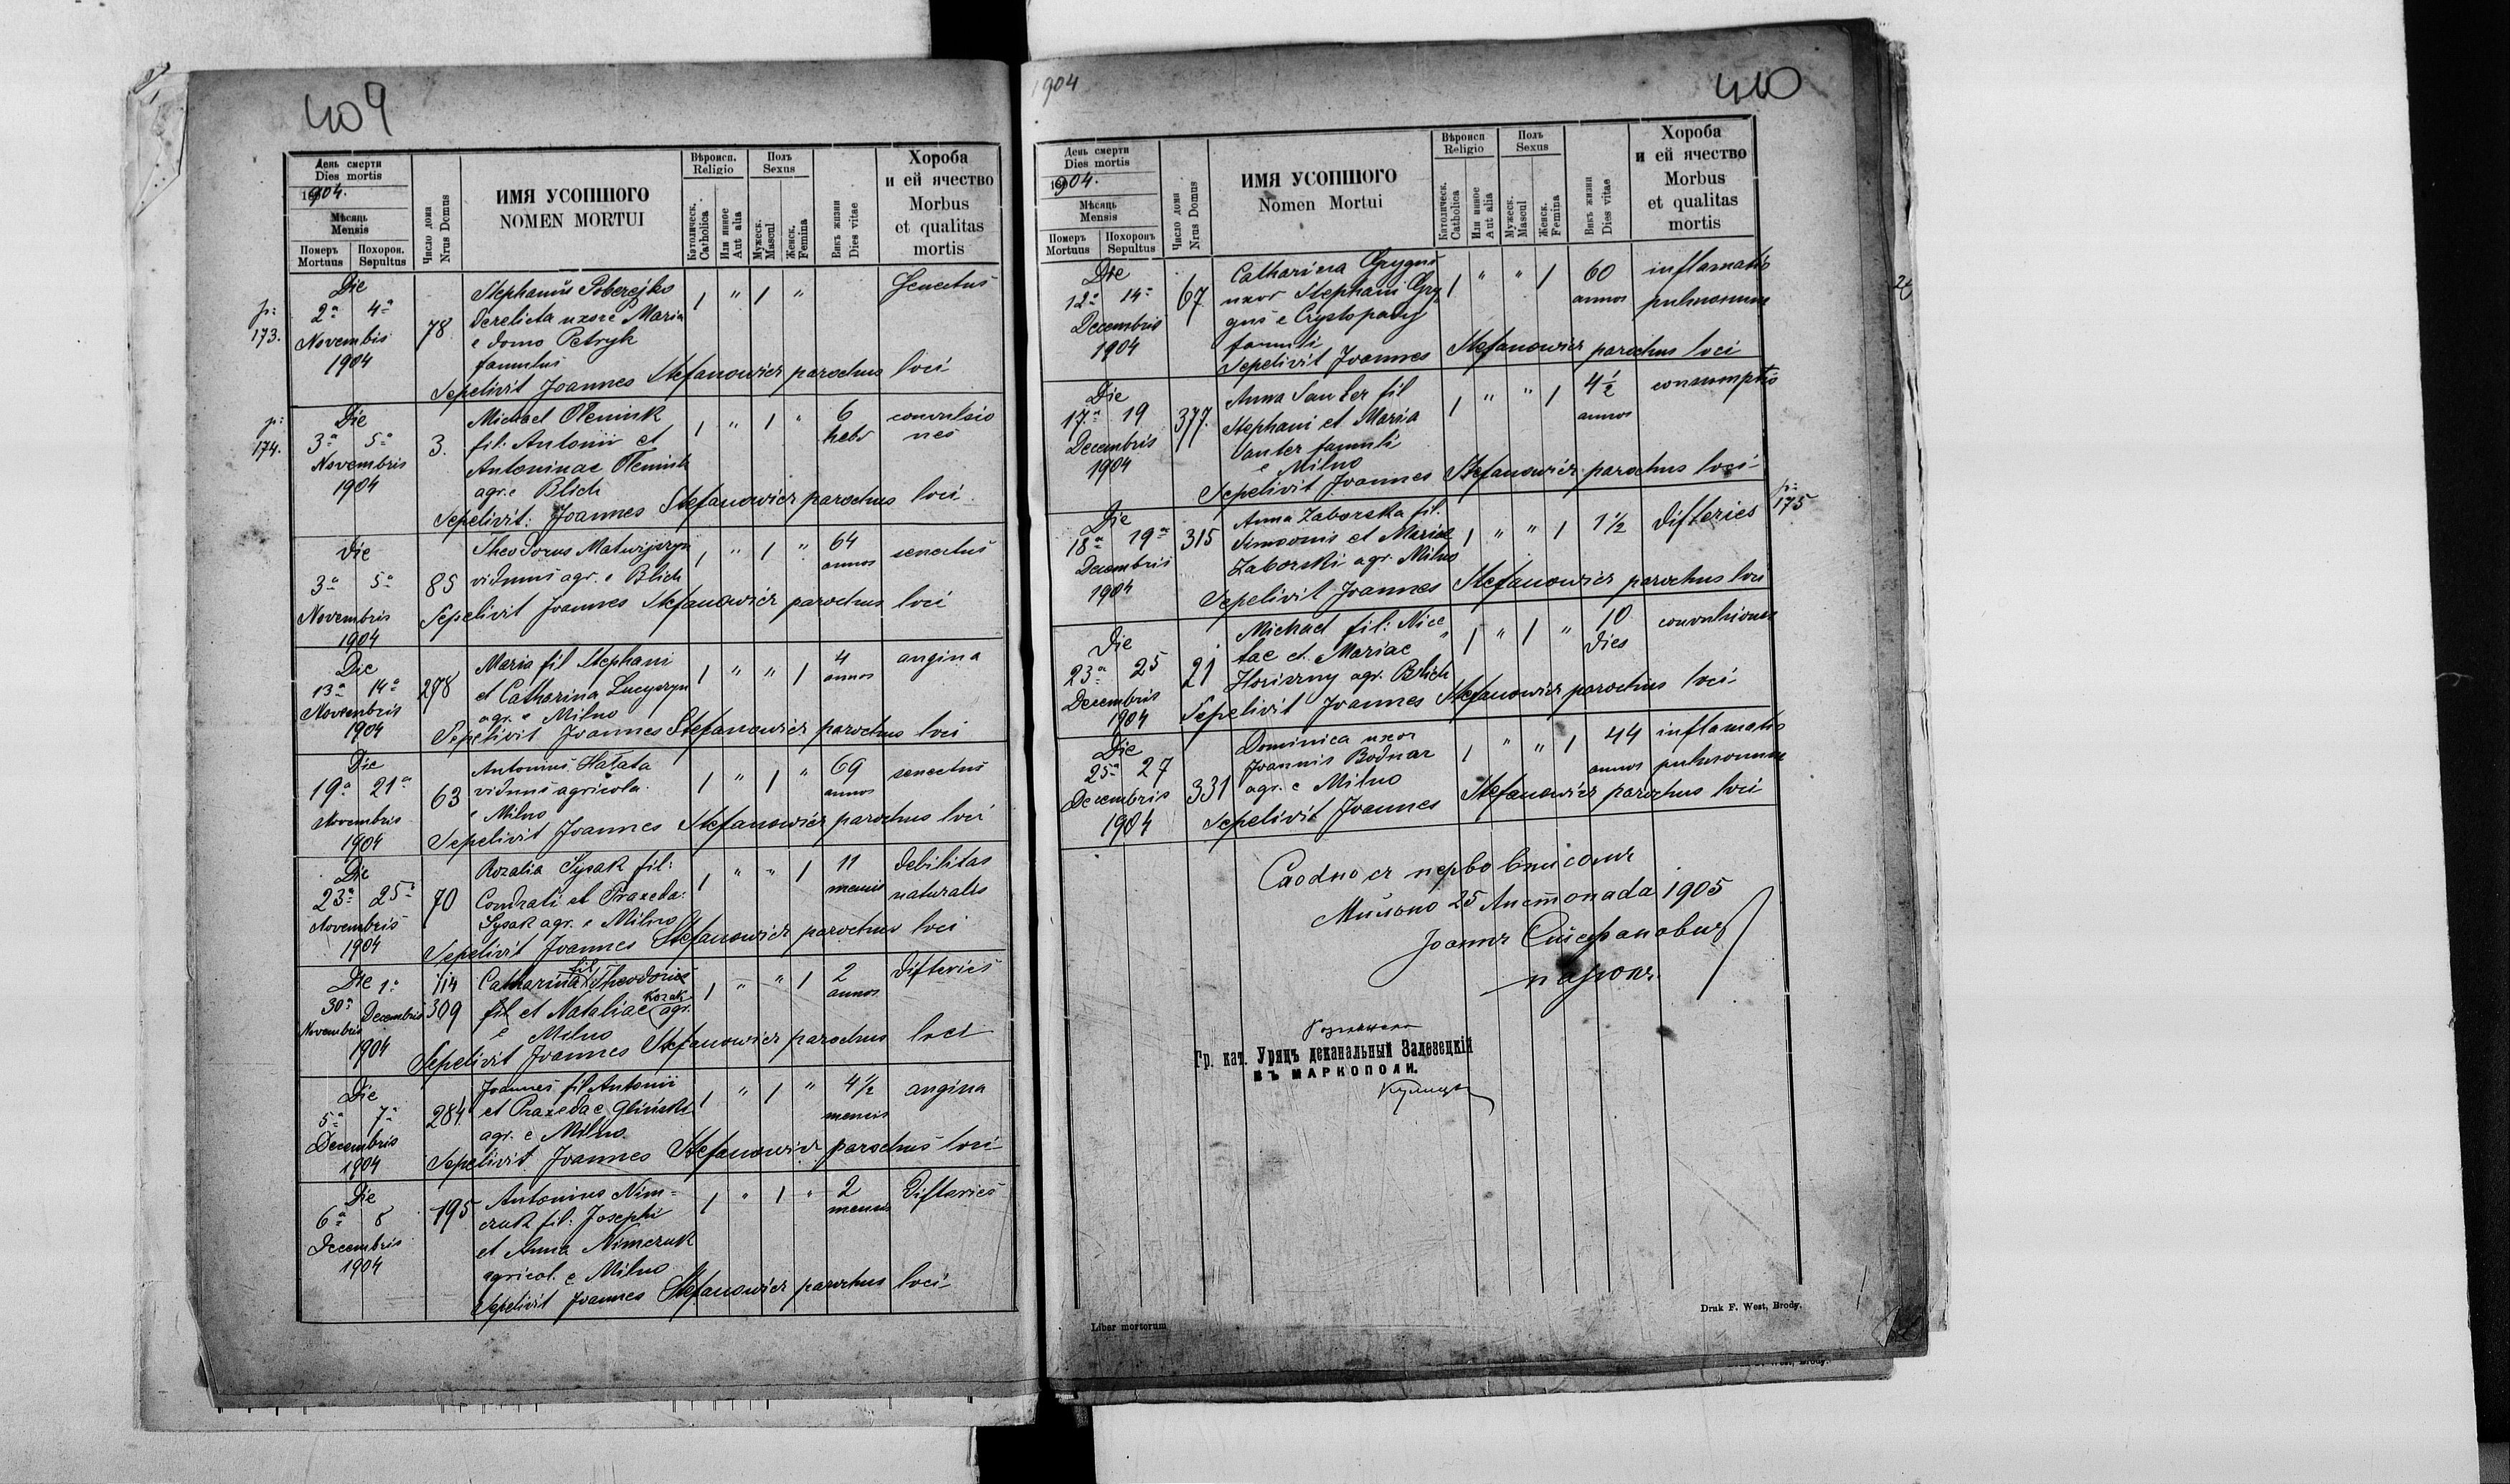 409
День смерти
Dies mortis
1904.
Мѣсяць
Mensis
Померъ Похорон.
Mortuus Sepultus
Число дома
Nrus Domus
ИМЯ УСОПШОГО
NOMEN MORTUI
Вѣроисп.
Religio
Католическ.
Catholica
Или инное
Aut alia
Полъ
Sexus
Мужеск.
Mascul
Женск.
Femina
Викъ жизни
Dies vitae
Хороба
и ей ячество
Morbus
et qualitas
mortis
p: 173.
Die
2ª 4ª
Novembis
1904
78
Stephanus Poberejko
derelicta uxore Maria
e domo Petryk
famulus
1 " 1 "
Senectus
Sepelivit Joannes Stefanowicz parochus loci
p: 174.
Die
3ª 5ª
Novembris
1904
3.
Michael Oleniuk
fil: Antonii et
Antoninae Oleniuk
agr. e Blich
1 " 1 "
6
hebd
convulsio
nes
Sepelivit: Joannes Stefanowicz parochus loci
Die
3ª 5ª
Novembris
1904
85
Theodorus Matwijczyn
viduus agr. e Blich
1 " 1 "
64
annos
senectus
Sepelivit Joannes Stefanowicz parochus loci
Die
13ª 14ª
Novembris
1904
278
Maria fil Stephani
et Catharina Lucyszyn
agr. e Milno
1 " " 1
4
annos
angina
Sepelivit Joannes Stefanowicz parochus loci
Die
19ª 21ª
Novembris
1904
63
Antonius Hałata
viduus agricola
e Milno
1 " 1 "
69
annos
senectus
Sepelivit Joannes Stefanowicz parochus loci
Die
23ª 25ª
Novembris
1904
70
Rozalia Sysak fil:
Condrati et Praxeda
Sysak agr. e Milno
1 " " 1
11
mensis
debilitas
naturalis
Sepelivit Joannes Stefanowicz parochus loci
Die 1ª
30ª
Novembris Decembris
1904
114
309
Catharina fil Theodori
fil et Nataliae Kozak agr.
e Milno
1 " " 1
2
annos
difteries
Sepelivit Joannes Stefanowicz parochus loci
Die
5ª 7ª
Decembris
1904
284
Joannes fil Antonii
et Praxedae Gliński
agr. e Milno
1 " 1 "
4 ½
mensis
angina
Sepelivit Joannes Stefanowicz parochus loci
Die
6ª 8
Decembris
1904
195
Antonius Nim=
czuk fil: Josephi
et Anna Nimczuk
agricol. e Milno
1 " 1 "
2
mensis
difteries
Sepelivit Joannes Stefanowicz parochus loci
1904
410
День смерти
Dies mortis
1904.
Мѣсяць
Mensis
Померъ Похоронъ
Mortuus Sepultus
Число дома
Nrus Domus
ИМЯ УСОПШОГО
Nomen Mortui
Вѣроисп
Religio
Католическ.
Catholica
Или инное
Aut alia
Полъ
Sexus
Мужеск.
Mascul
Женск.
Femina
Викъ жизни
Dies vitae
Хороба
и ей ячество
Morbus
et qualitas
mortis
Die
12ª 14ª
Decembris
1904
67
Catharina Grygus
uxor Stephani Gry
gus e Czystopady
famuli
1 " " 1
60
annos
inflamatio
pulmonum
Sepelivit Joannes Stefanowicz parochus loci
Die
17ª 19
Decembris
1904
377.
Anna Sauter fil
Stephani et Maria
Sauter famuli
e Milno
1 " " 1
4 ½
annos
consumptio
Sepelivit Joannes Stefanowicz parochus loci
p: 175
Die
18ª 19ª
Decembris
1904
315
Anna Zaborska fil.
Simeonis et Mariae
Zaborski agr. Milno
1 " " 1
1 ½
difteries
Sepelivit Joannes Stefanowicz parochus loci
Die
23ª 25
Decembris
1904
21
Michael fil: Nice
tae et Mariae
agr. Blich
1 " 1 "
10
dies
convulsiones
Sepelivit Joannes Stefanowicz parochus loci
Die
25ª 27
Decembris
1904
331
Dominica uxor
Joannis Bodnar
agr. e Milno
1 " " 1
44
annos
inflamatio
pulmonum
Sepelivit Joannes Stefanowicz parochus loci
Сходно съ перво
Мильно 25 Листопада 1905
Іоаннъ Стефановичъ
парохъ.
Гр. кат. Урядъ деканальный Заложецкій
въ МАРКОПОЛИ.
Liber mortorum
Druk F. West, Brody.